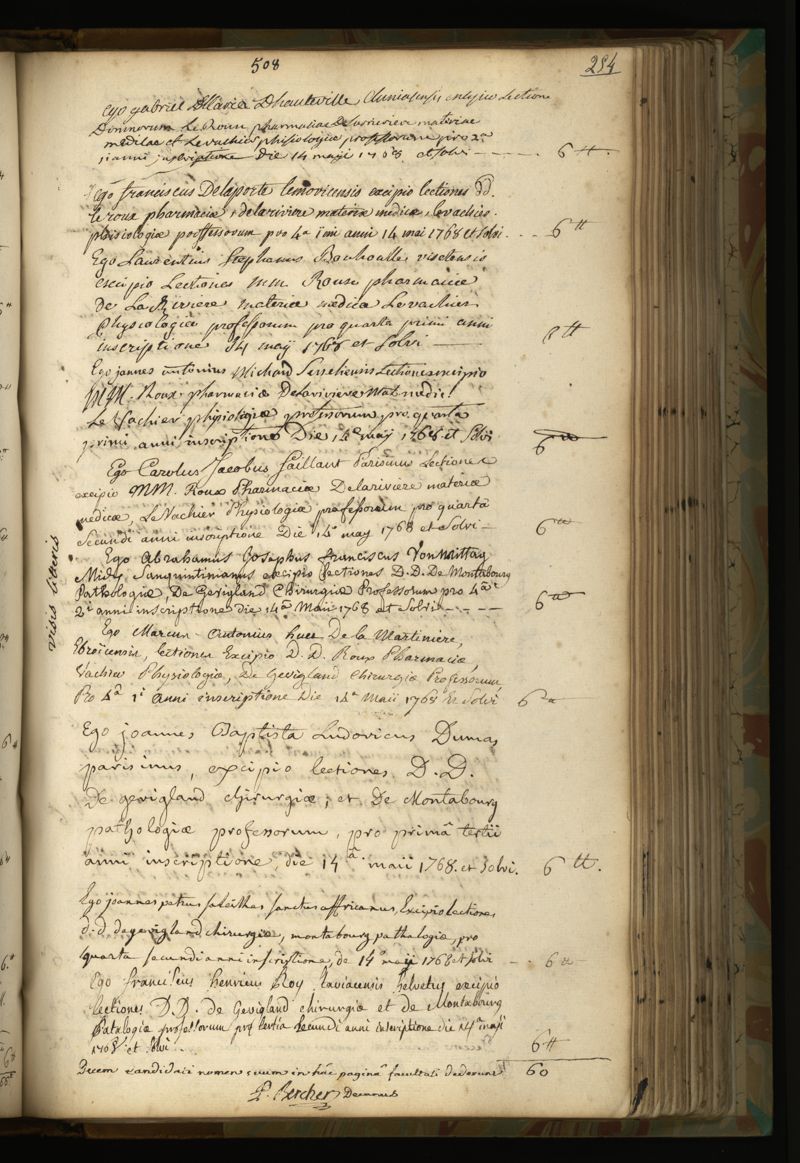 508
254
Ego gabriel Maria Dhauteville Cluniasensis excipio Lectione
Dominorum Le Roux pharmaciae Delariviere materiae
medicae et Levacher phisiologiae professorum pro 2a
1i anni inscriptione Die 14 maji 1768 et solvi 6 tt.
Ego franciscus Delaporte lemovicensis excipio lectiones dd.
le roux pharmaciæ, delariviere materiæ medicæ, levachier
phisiologiæ professorum pro 4a imi anni 14 mai 1768 et solvi. 6 tt
Ego Laurentius Stephanus viselensis
excipio Lectiones mm Roux pharmaciæ
De La Riviere materiæ medica Levachier
Physiologiæ professorum pro quarta primi anni
inscriptione 14 maij 1768 et solvi tt
Ego joannes antonius Michard Lectiones excipio
MM. Roux pharmaciæ Delariviere Mat medic.
Le Vachier physiologiæ professorum pro quarta
primi anni inscriptione Die 14e maij 1768 et solvi 6
Ego Carolus Jacobus Saillant Parisinus Lectiones
excipio MM. Roux Pharmaciæ Delariviere materiæ
medicæ, Le Vachier Physiologiæ professorum pro quarta
secundi anni inscriptione Die 14 may 1768 et solvi 6 tt
Ego Abrahamus Josephus franciscus Vonmittag
Midy Sanquintinianus excipio Lectiones D.D. De Montabourg
Pathologiæ, De Gevigland Chirurgiæ Professorum pro 4a
2i anni inscriptione die 14a Maii 1768 et Solvi 6 tt
visis litteris
Ego Marcus-Antonius huet De la Martiniere,
Ebroicensis, lectiones Excipio D.D. Roux Pharmaciæ,
Vachier Physiologiæ, De Gevigland Chirurgiæ Professorum
Pro 4a 1i anni inscriptione Die 14a Maii 1768 Et Solvi 6 tt
Ego joannes Baptista Ludovicus Dumas
parisinus, excipio lectiones D.D.
De gevigland chirurgiæ, et De Montabourg
pathologiæ professorum, pro primâ tertii
anni inscriptione, die 14â maii 1768. et solvi. 6 tt.
Ego joannes petrus sanctus affricanus, Excipio lectiones
d.d. degevigland chirurgiæ, montabourg pathalogiæ, pro
quarta secundi anni inscriptione, de 14e maij 1768 et solvi 6 tt
Ego franciscus henricus Roy helvetus excipio
lectiones D.D. de Gevigland chirurgiæ et de Montabourg
Patalogiæ professorum pro tertia secundi anni inscriptione die 14a maji
1768 et solvi. 6 tt
Decem candidati nomen suum in hâc paginâ facultati dederunt 60
P. Bercher Decanus